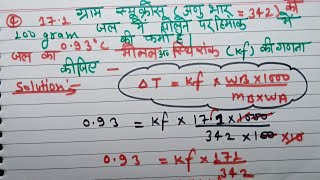 ④ 17.1 ग्राम स्यूक्रोस (अणु भार = 342) को
200 gram जल में घोलने पर हिमांक में
0.93°C की कमी है।
जल का मोलल अव स्थिरांक (Kf) की गणना
कीजिए -
Solution's
ΔT = Kf × WB × 1000 / mB × WA
0.93 = Kf × 171 × 1000 / 342 × 100 × 10
0.93 = Kf × 171 / 342